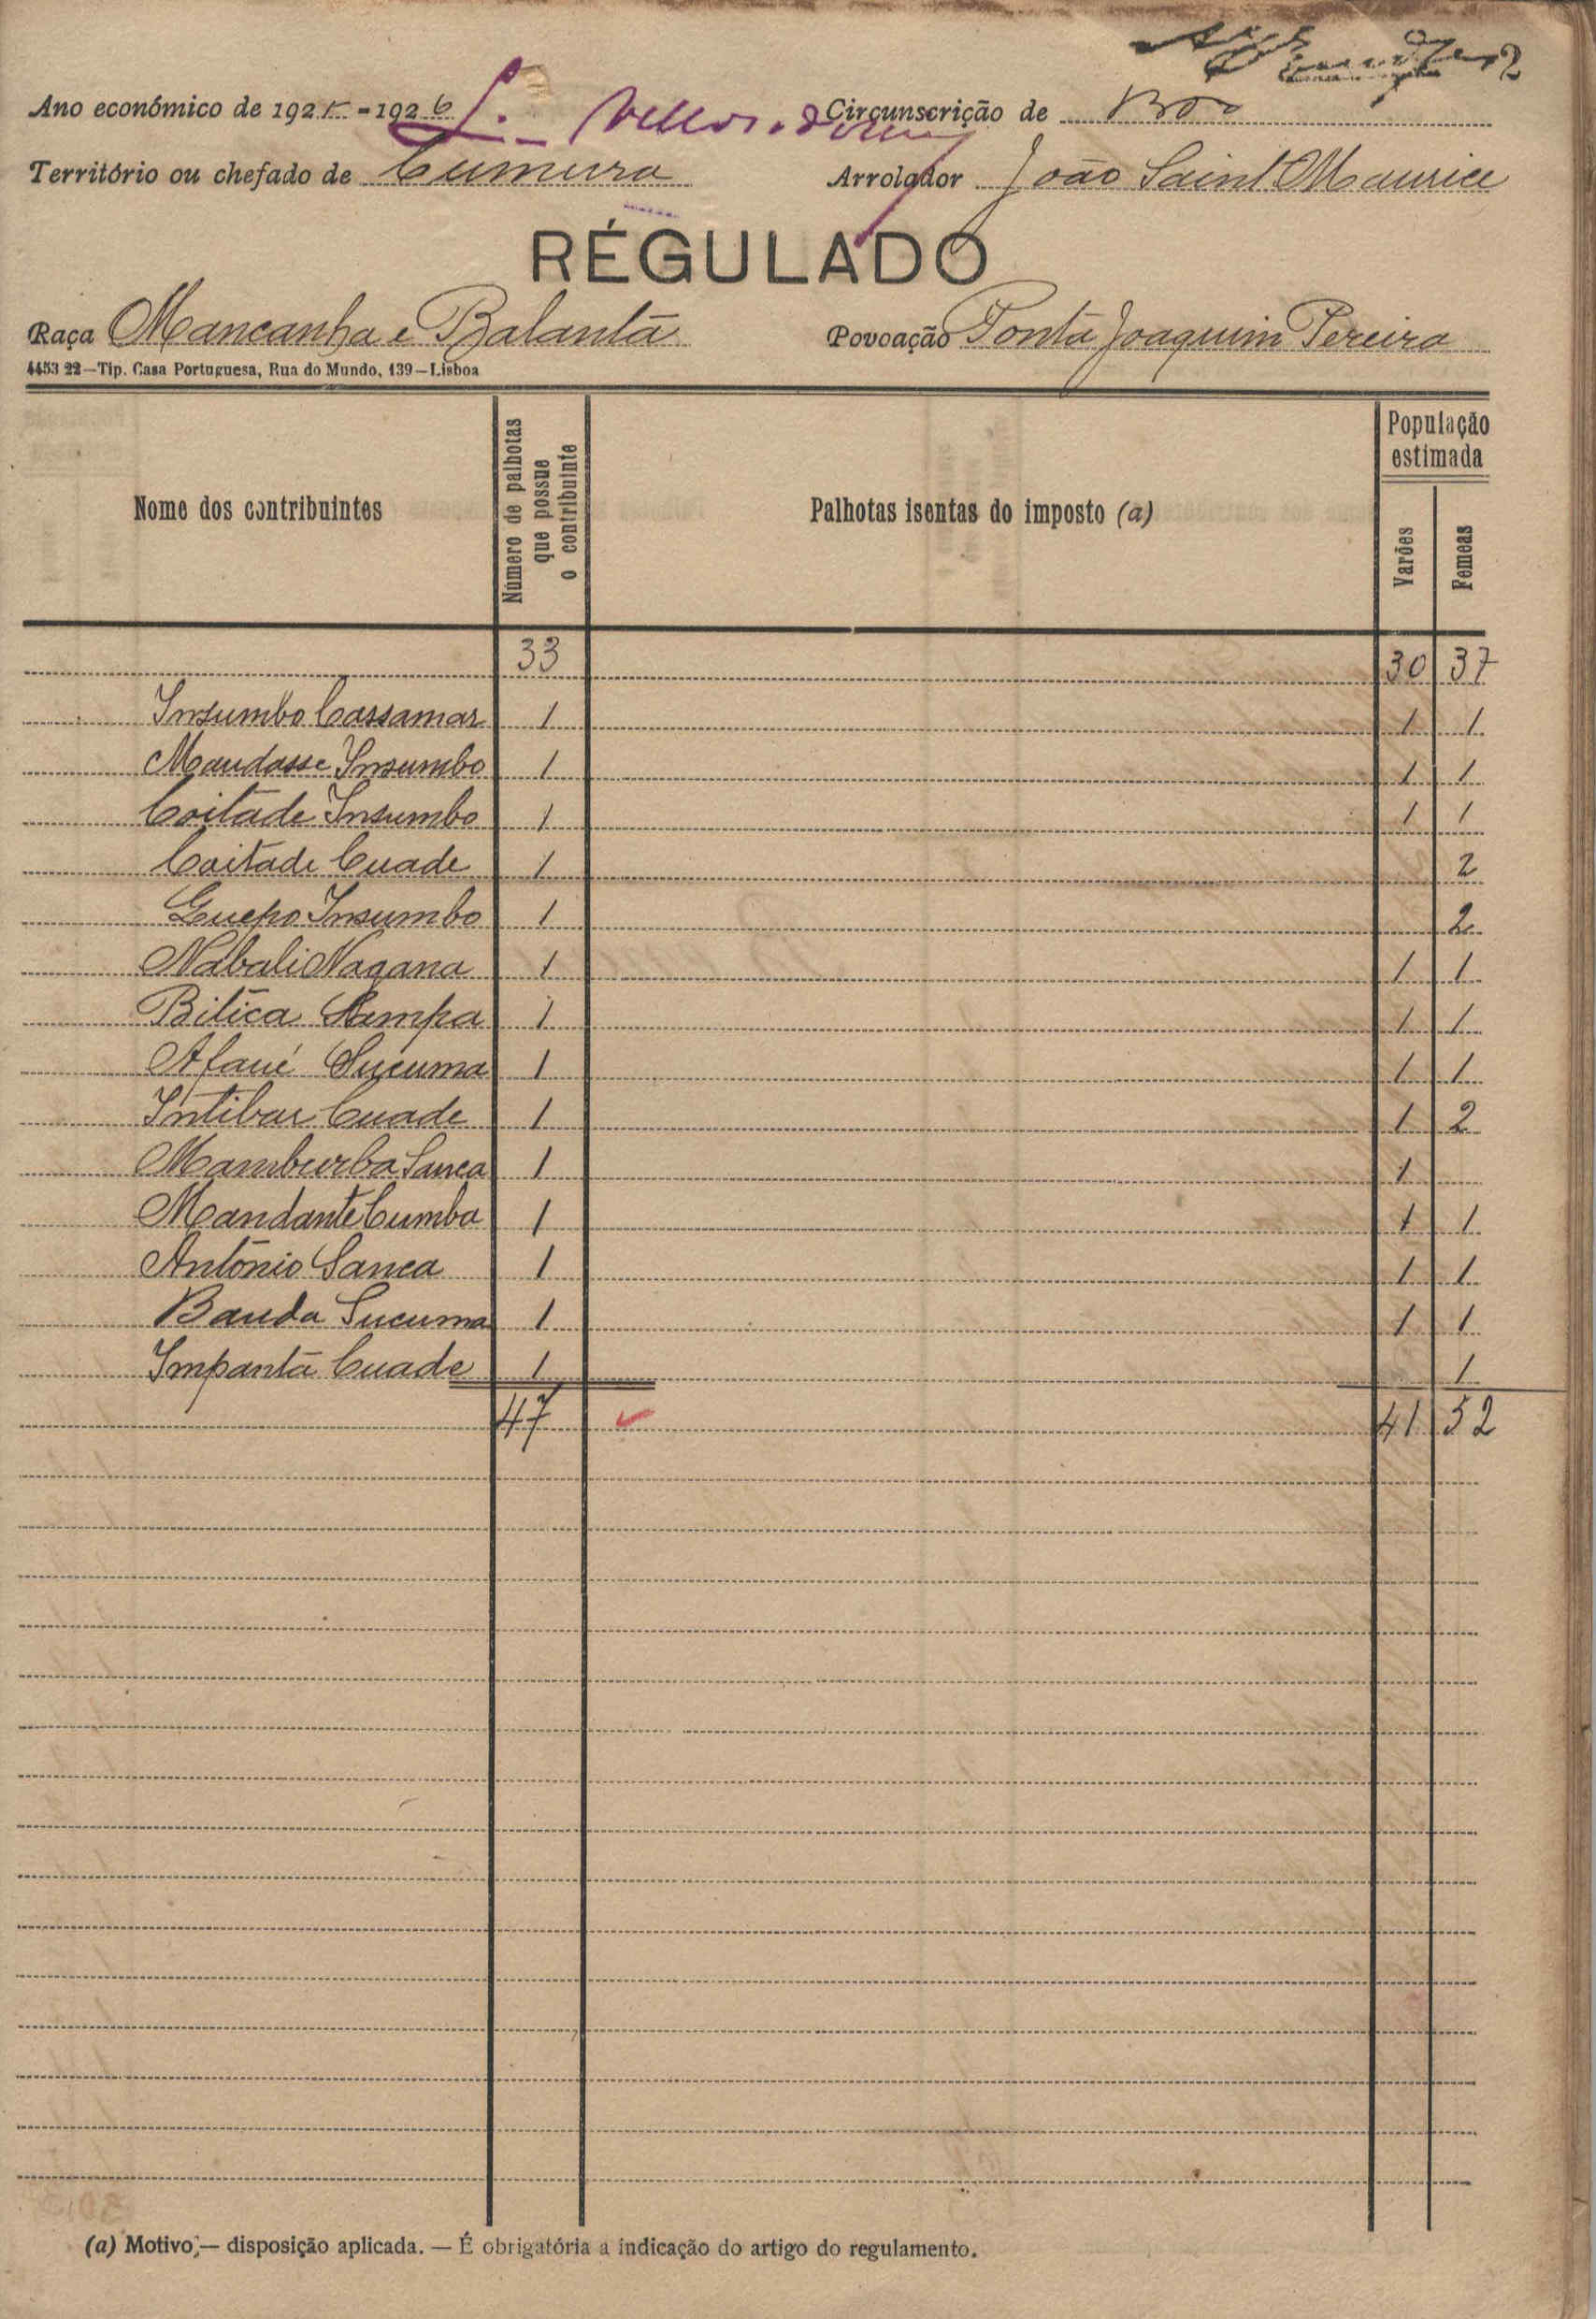 2
Ano económico de 1925-1926 Circunscrição de Bôr
Território ou chefado de Cumura Arrolador João Saint Maurice
RÉGULADO
Raça Mancanha e Balanta Povoação Ponta Joaquim Pereira
4453 22—Tip. Casa Portuguesa, Rua do Mundo, 139—Lisboa
Nome dos contribuintes Número de palhotas que possue o contribuinte Palhotas isentas do imposto (a) População estimada Varões Femeas
33 30 37
Insumbo Cassamar 1 1 1
Maudasse Insumbo 1 1 1
Coitade Insumbo 1 1 1
Coitade Cuade 1 2
Guepo Insumbo 1 2
Nabali Nagana 1 1 1
Bitica Sampa 1 1 1
Afaué Sucuma 1 1 1
Intibar Cuade 1 1 2
Mamburba Sanca 1 1
Mandante Cumba 1 1 1
António Sanca 1 1 1
Banda Sucuma 1 1 1
Impantá Cuade 1 1
47 41 52
(a) Motivo,— disposição aplicada. — É obrigatória a indicação do artigo do regulamento.